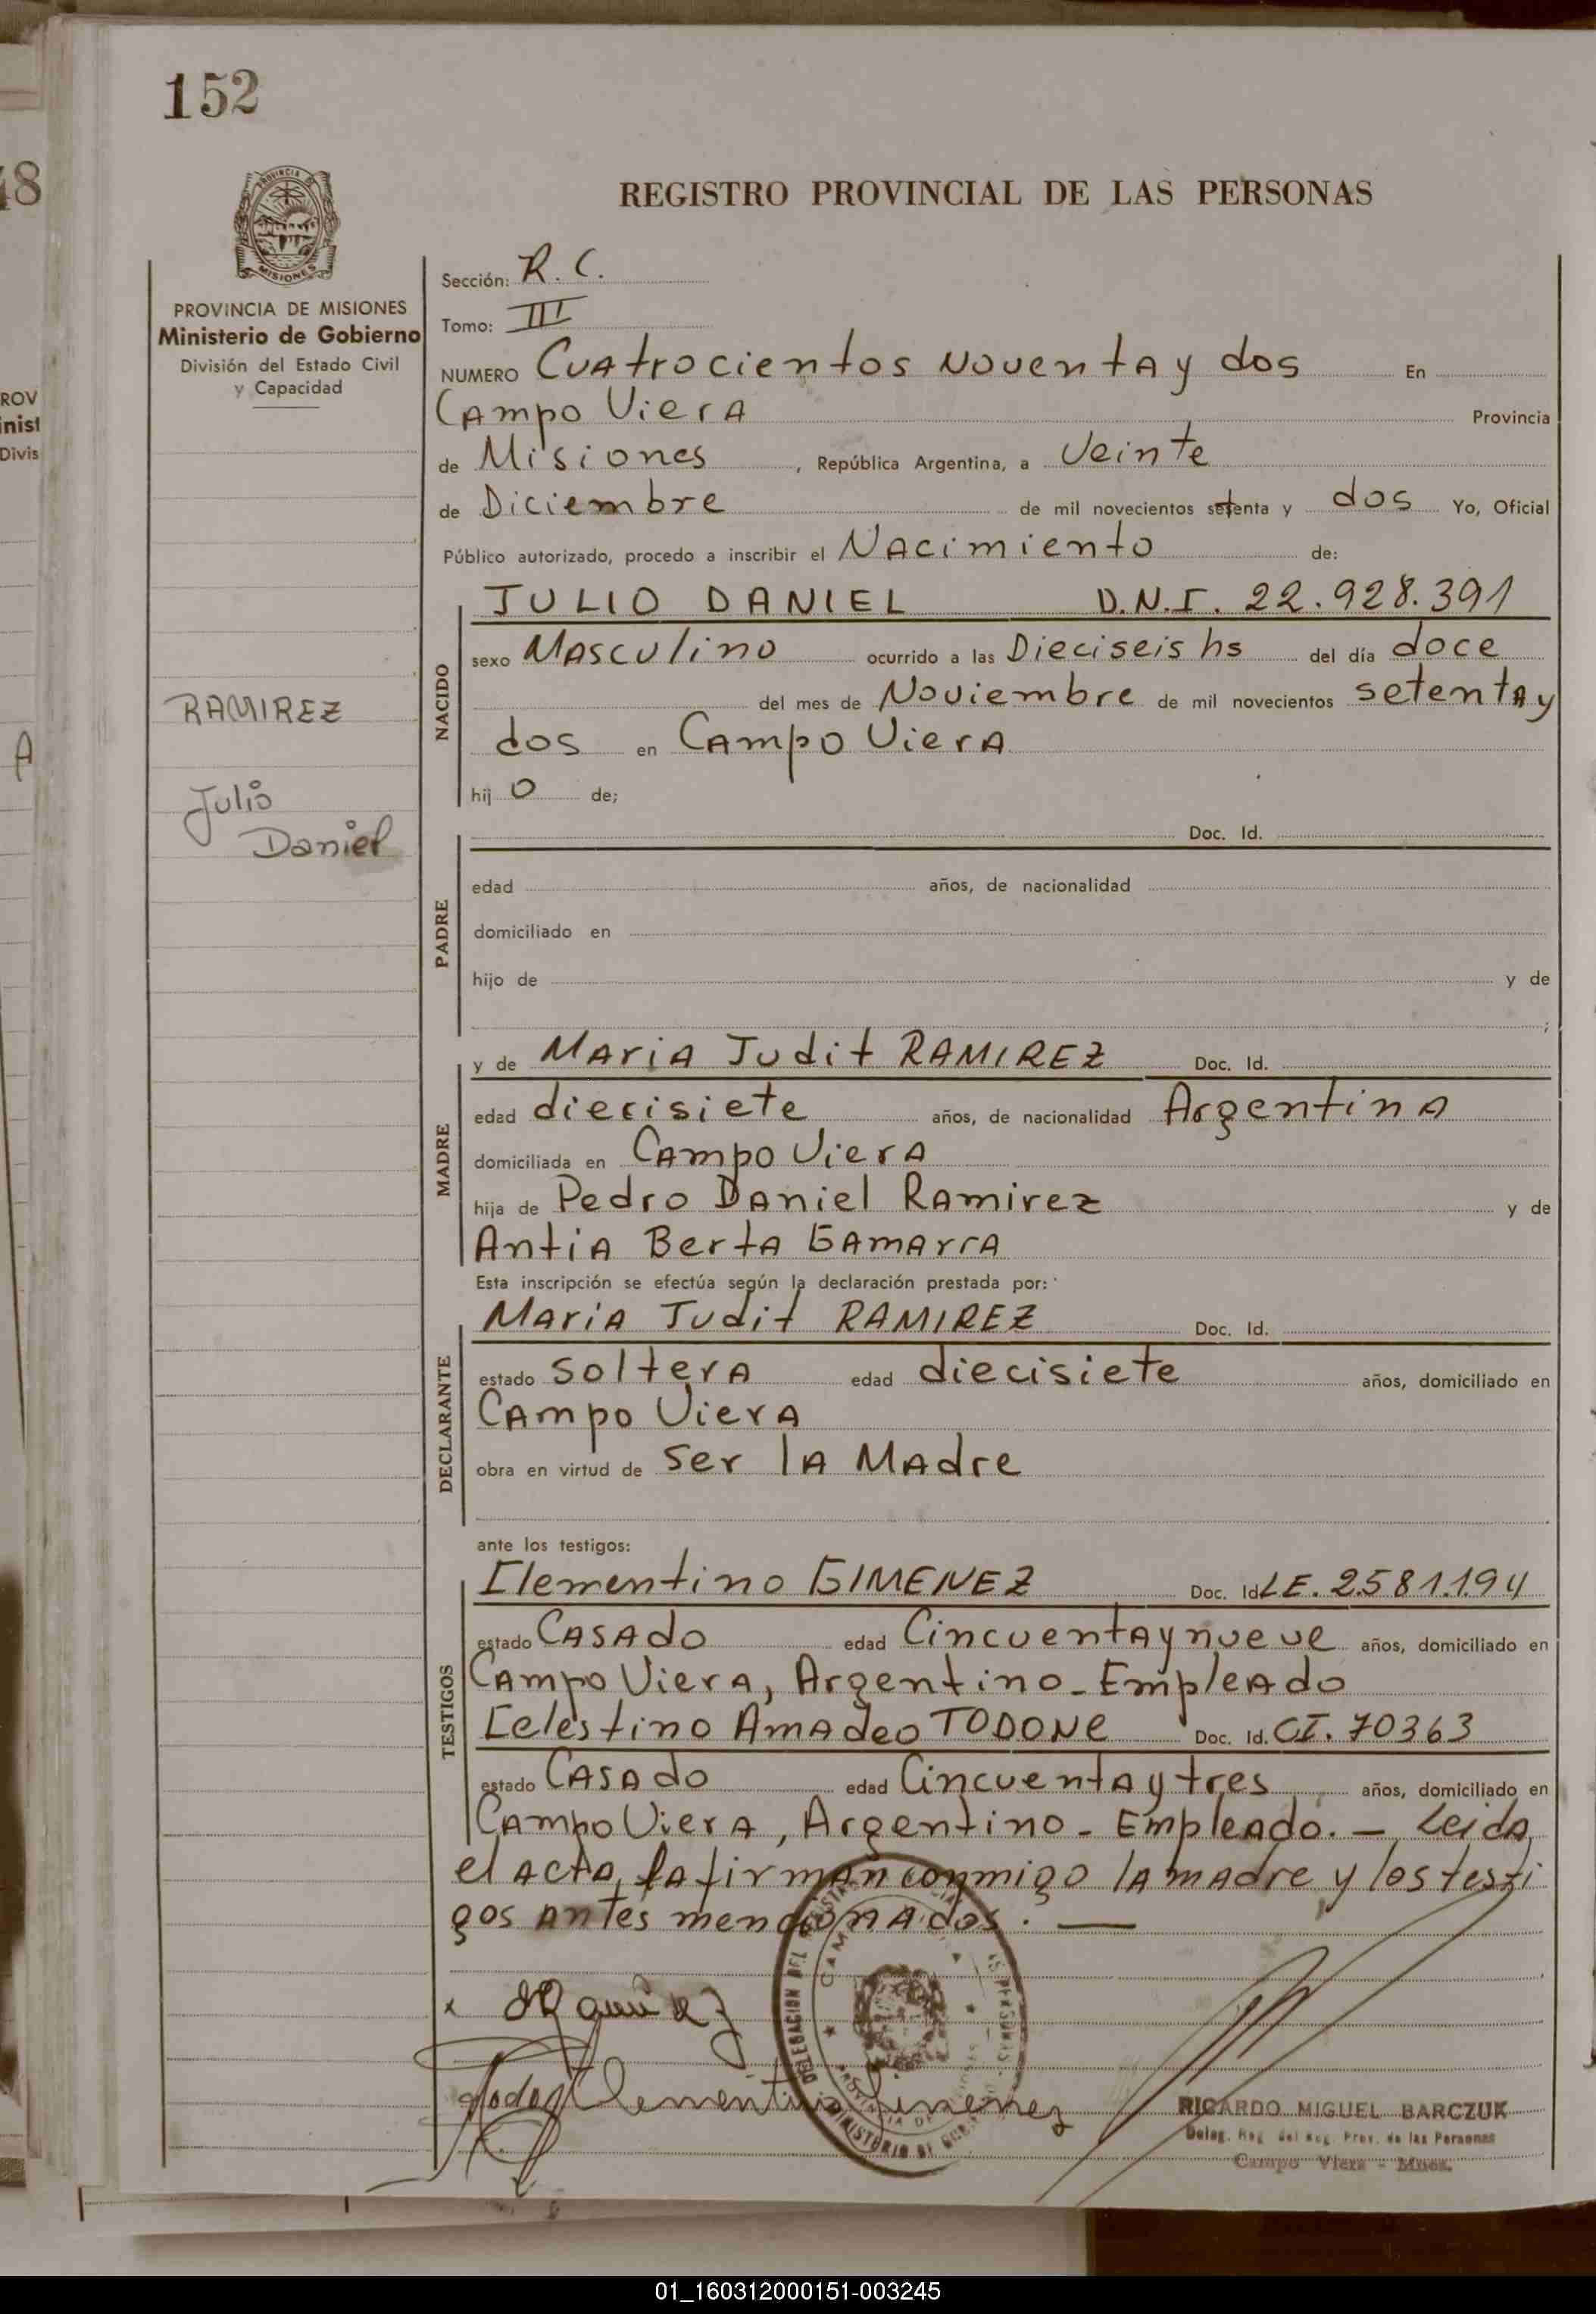 152
48
REGISTRO PROVINCIAL DE LAS PERSONAS
PROVINCIA DE
MISIONES
PROVINCIA DE MISIONES
Ministerio de Gobierno
División del Estado Civil
y Capacidad
ROV
inist
Divis
A
RAMIREZ
Julio
Daniel
Sección: R. C.
Tomo: III
NUMERO Cuatrocientos Noventa y dos En
Campo Viera Provincia
de Misiones, República Argentina, a Veinte
de Diciembre de mil novecientos setenta y dos Yo, Oficial
Público autorizado, procedo a inscribir el Nacimiento de:
NACIDO
JULIO DANIEL D.N.I. 22.928.391
sexo Masculino ocurrido a las Dieciseis hs del día doce
del mes de Noviembre de mil novecientos setenta y
dos en Campo Viera
hij o de;
PADRE
Doc. Id.
edad años, de nacionalidad
domiciliado en
hijo de y de
;
MADRE
y de Maria Judit RAMIREZ Doc. Id.
edad diecisiete años, de nacionalidad Argentina
domiciliada en Campo Viera
hija de Pedro Daniel Ramirez y de
Antia Berta Gamarra
Esta inscripción se efectúa según la declaración prestada por:
DECLARANTE
Maria Judit RAMIREZ Doc. Id.
estado soltera edad diecisiete años, domiciliado en
Campo Viera
obra en virtud de ser la Madre
ante los testigos:
TESTIGOS
Clementino GIMENEZ Doc. Id. LE. 2.581.194
estado Casado edad Cincuenta y nueve años, domiciliado en
Campo Viera, Argentino - Empleado
Celestino Amadeo TODONE Doc. Id. CI. 70363
estado Casado edad Cincuenta y tres años, domiciliado en
Campo Viera, Argentino - Empleado. - Leida
el acta, la firman conmigo la madre y los testi
gos antes mencionados. —
Clementino Jimenez
DELEGACION DEL
MINISTERIO DE
PROVINCIA DE
RICARDO MIGUEL BARCZUK
Deleg. Reg. del Reg. Prov. de las Personas
Campo Viera - Mnes.
01_160312000151-003245